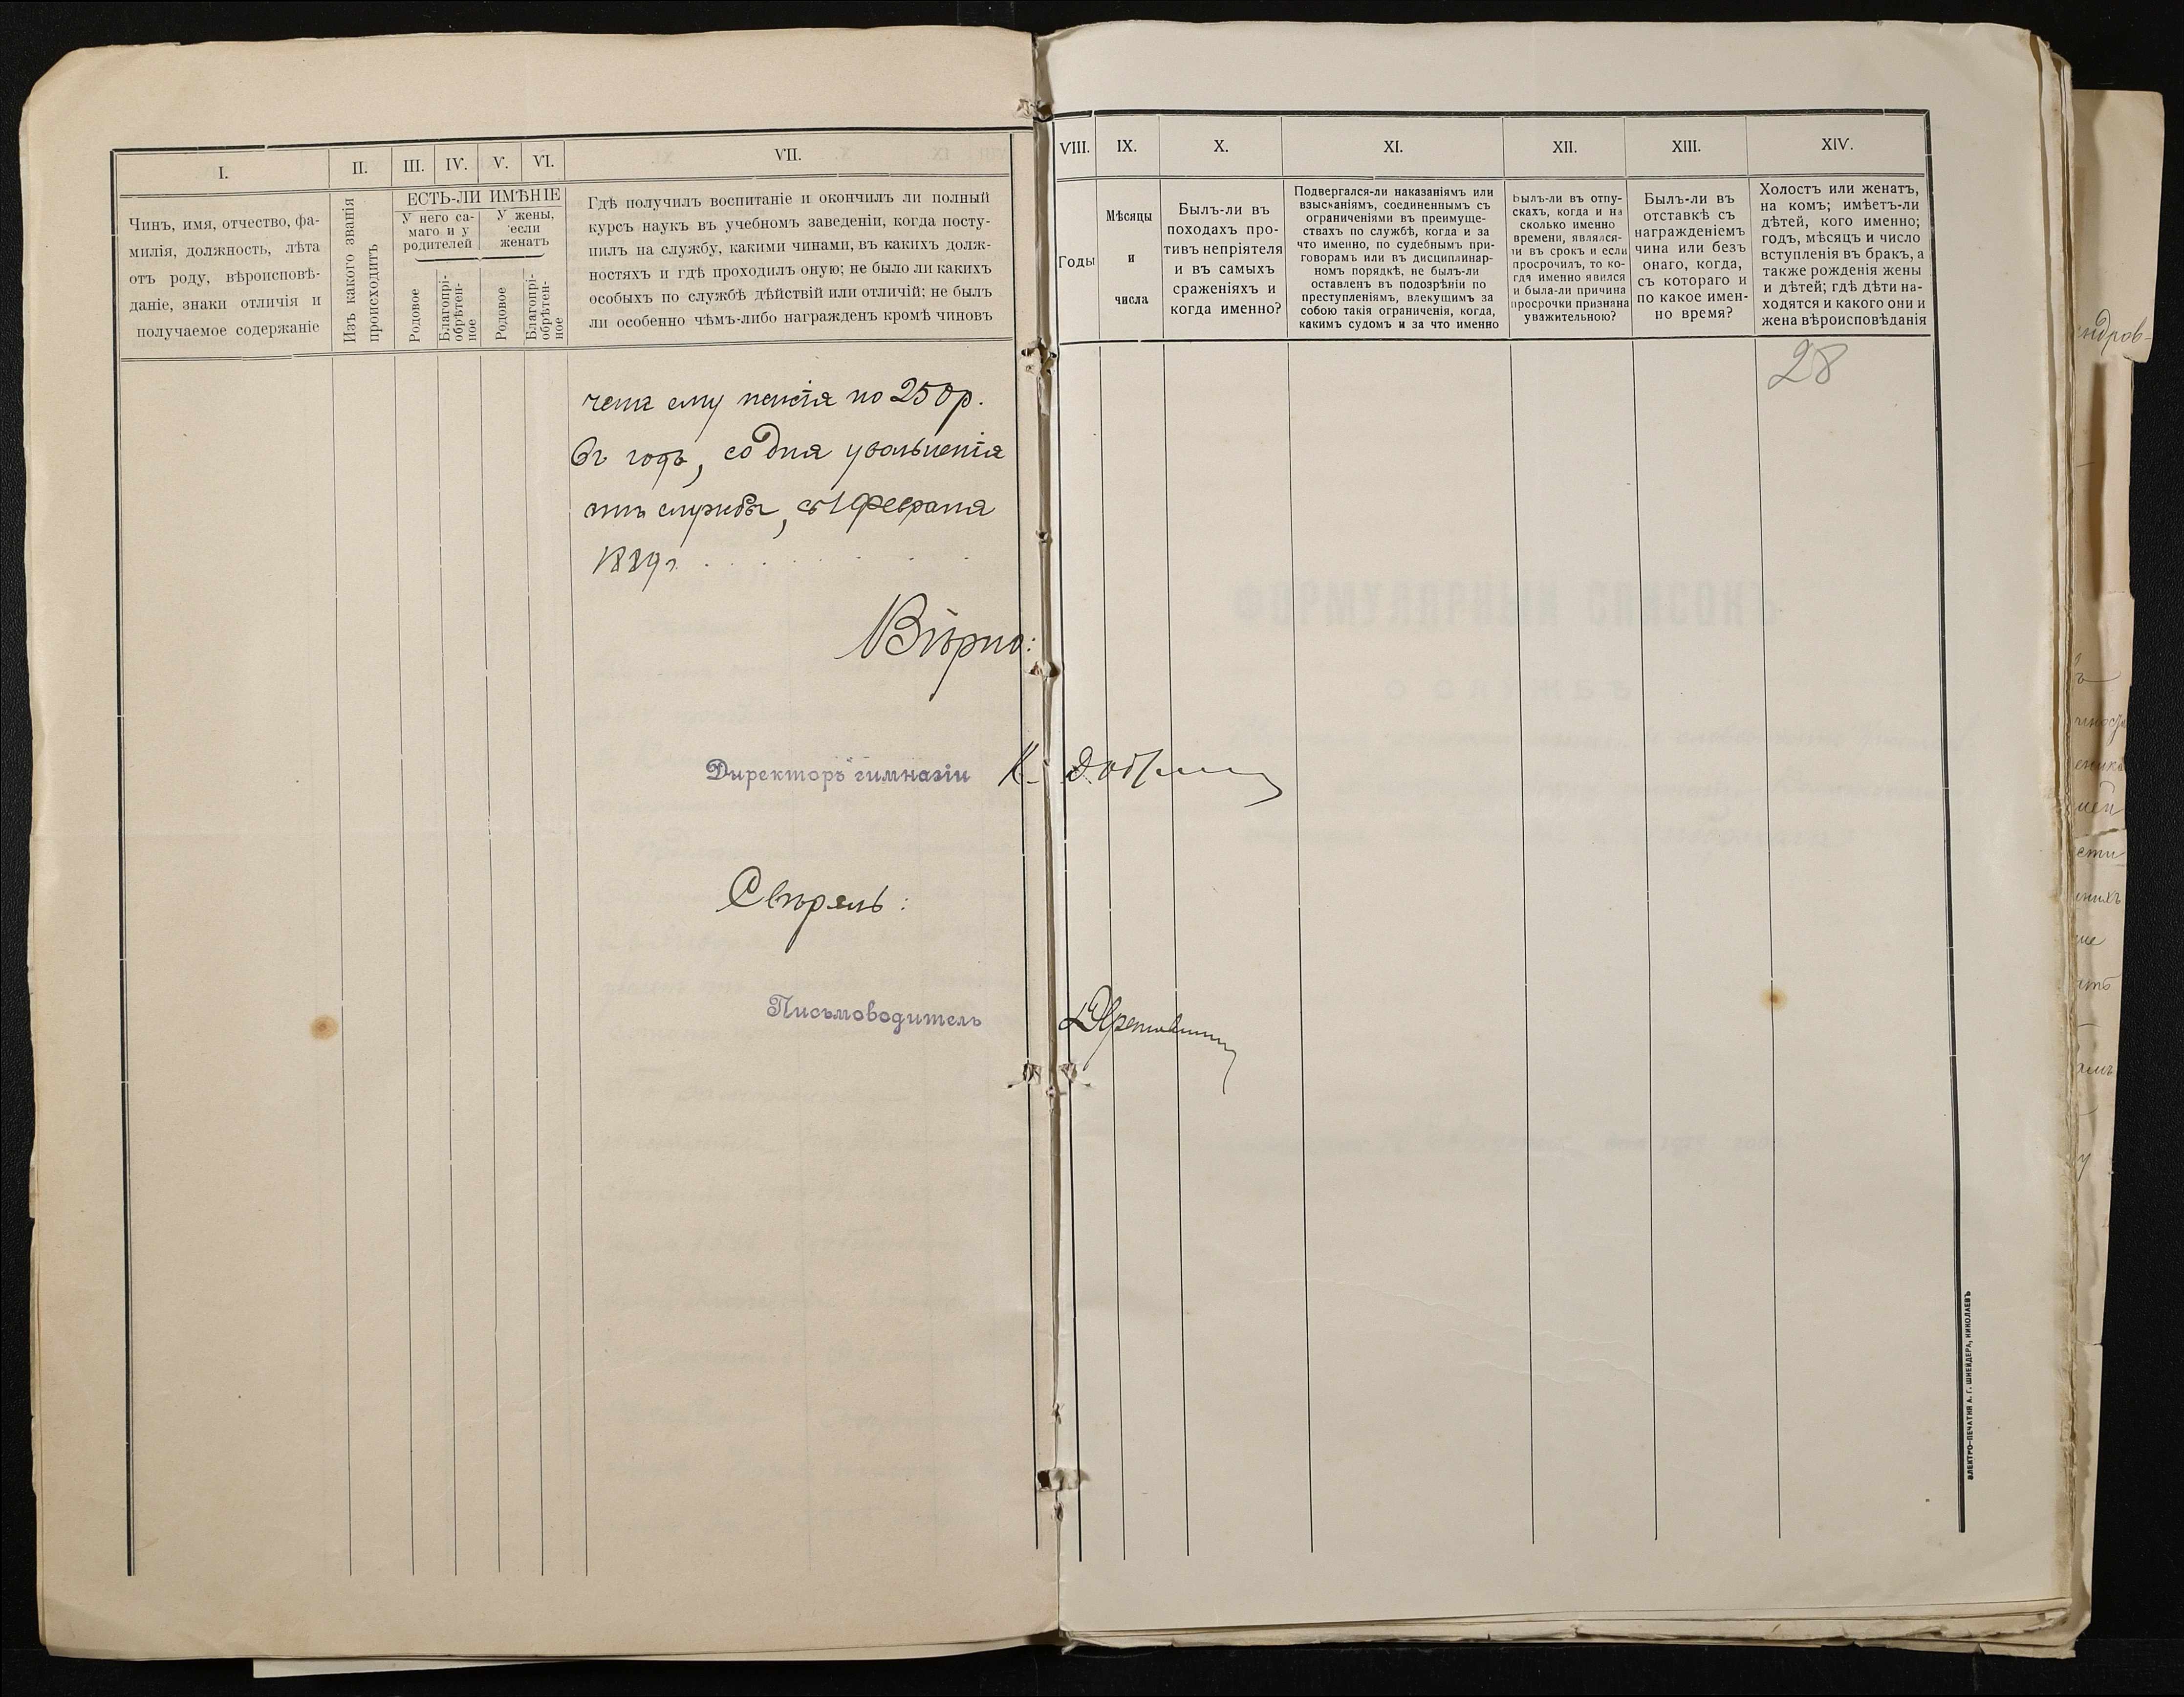 I.
II.
III.
IV.
V.
VI.
VII.
Чинъ, имя, отчество, фа-
милія, должность, лѣта
отъ роду, вѣроисповѣ-
даніе, знаки отличія и
получаемое содержаніе
Изъ какого званія
происходитъ
ЕСТЬ-ЛИ ИМѢНІЕ
У него са-
маго и у
родителей
У жены,
если
женатъ
Родовое
Благопрі-
обрѣтен-
ное
Родовое
Благопрі-
обрѣтен-
ное
Гдѣ получилъ воспитаніе и окончилъ ли полный
курсъ наукъ въ учебномъ заведеніи, когда посту-
пилъ на службу, какими чинами, въ какихъ долж-
ностяхъ и гдѣ проходилъ оную; не было ли какихъ
особыхъ по службѣ дѣйствій или отличій; не былъ
ли особенно чѣмъ-либо награжденъ кромѣ чиновъ
чена ему пенсія по 250р.
въ годъ, со дня увольненія
отъ службы, съ 1 февраля
1889г.
Вѣрно:
Директоръ гимназіи К.
Свѣрялъ:
Письмоводитель
VIII.
IX.
X.
XI.
XII.
XIII.
XIV.
Годы
Мѣсяцы
и
числа
Былъ-ли въ
походахъ про-
тивъ непріятеля
и въ самыхъ
сраженіяхъ и
когда именно?
Подвергался-ли наказаніямъ или
взысканіямъ, соединеннымъ съ
ограниченіями въ преимуще-
ствахъ по службѣ, когда и за
что именно, по судебнымъ при-
говорамъ или въ дисциплинар-
номъ порядкѣ, не былъ-ли
оставленъ въ подозрѣніи по
преступленіямъ, влекущимъ за
собою такія ограниченія, когда,
какимъ судомъ и за что именно
Былъ-ли въ отпу-
скахъ, когда и на
сколько именно
времени, являлся-
ли въ срокъ и если
просрочилъ, то ко-
гда именно явился
и была-ли причина
просрочки признана
уважительною?
Былъ-ли въ
отставкѣ съ
награжденіемъ
чина или безъ
онаго, когда,
съ котораго и
по какое имен-
но время?
Холостъ или женатъ,
на комъ; имѣетъ-ли
дѣтей, кого именно;
годъ, мѣсяцъ и число
вступленія въ бракъ, а
также рожденія жены
и дѣтей; гдѣ дѣти на-
ходятся и какого они и
жена вѣроисповѣданія
28
ЭЛЕКТРО-ПЕЧАТНЯ А. Г. ШНЕЙДЕРА, НИКОЛАЕВЪ